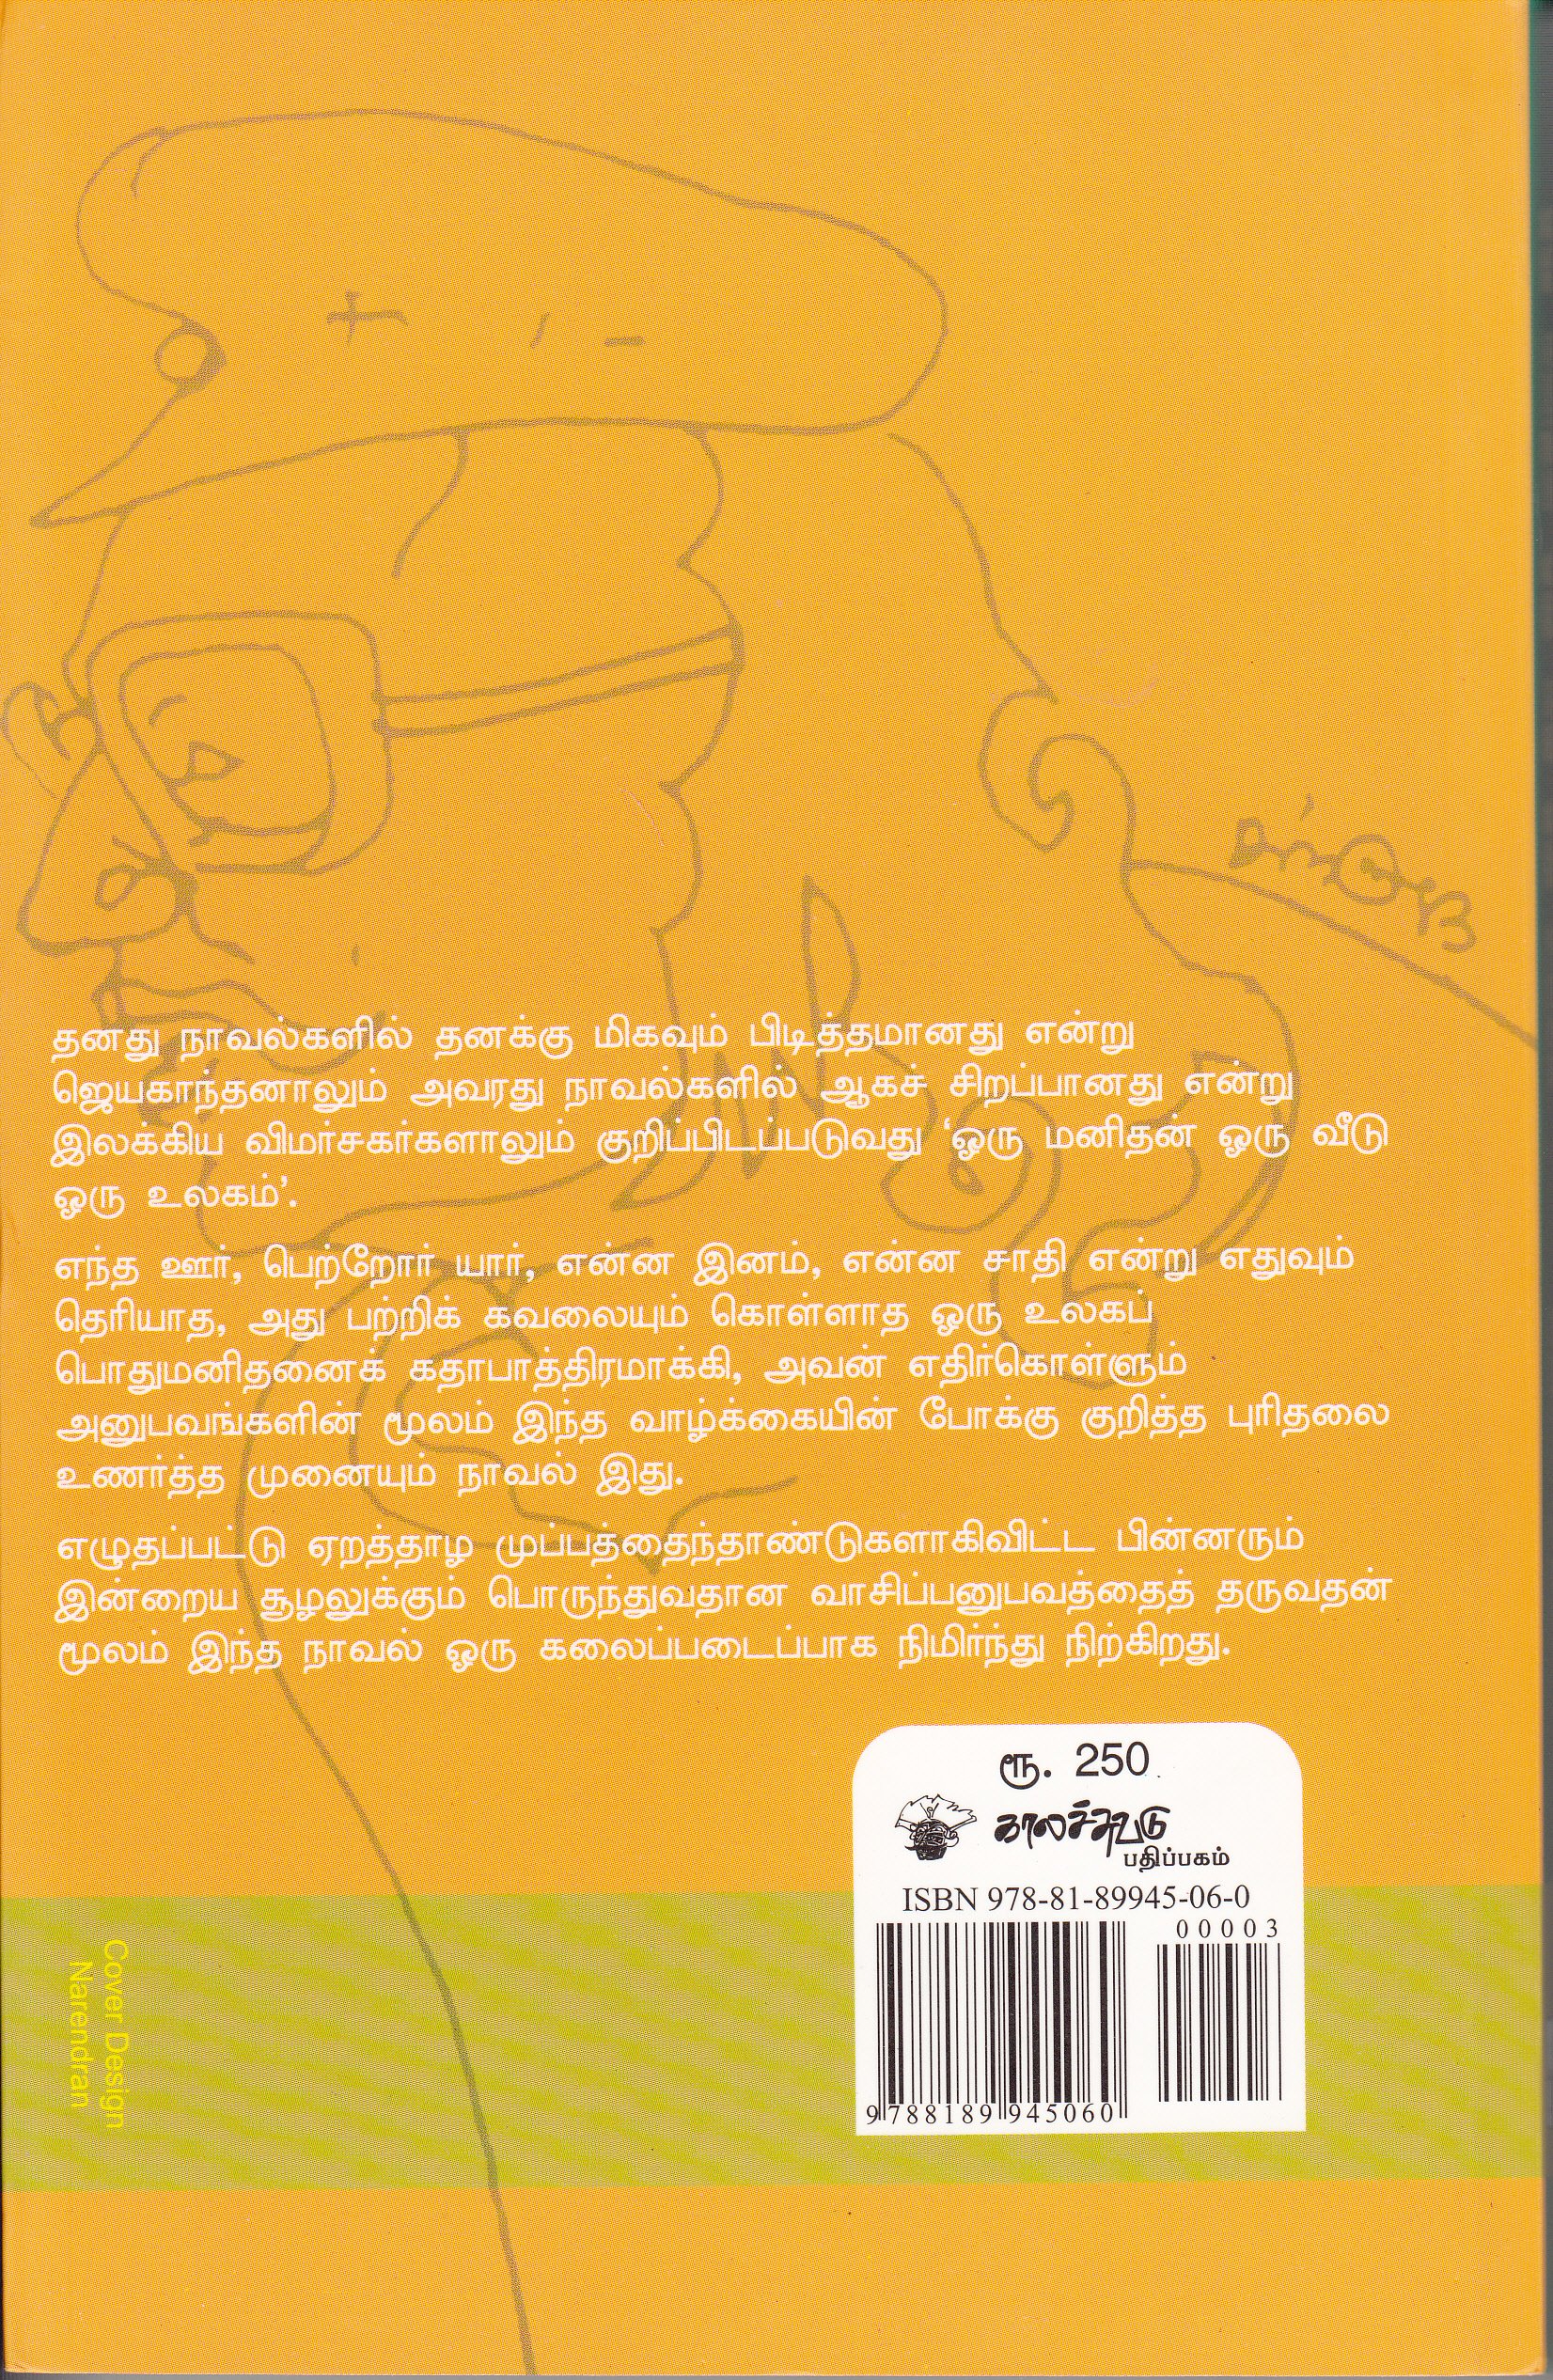 தனது நாவல்களில் தனக்கு மிகவும் பிடித்தமானது என்று
ஜெயகாந்தனாலும் அவரது நாவல்களில் ஆகச் சிறப்பானது என்று
இலக்கிய விமர்சகர்களாலும் குறிப்பிடப்படுவது ‘ஒரு மனிதன் ஒரு வீடு
ஒரு உலகம்’.
எந்த ஊர், பெற்றோர் யார், என்ன இனம், என்ன சாதி என்று எதுவும்
தெரியாத, அது பற்றிக் கவலையும் கொள்ளாத ஒரு உலகப்
பொதுமனிதனைக் கதாபாத்திரமாக்கி, அவன் எதிர்கொள்ளும்
அனுபவங்களின் மூலம் இந்த வாழ்க்கையின் போக்கு குறித்த புரிதலை
உணர்த்த முனையும் நாவல் இது.
எழுதப்பட்டு ஏறத்தாழ முப்பத்தைந்தாண்டுகளாகிவிட்ட பின்னரும்
இன்றைய சூழலுக்கும் பொருந்துவதான வாசிப்பனுபவத்தைத் தருவதன்
மூலம் இந்த நாவல் ஒரு கலைப்படைப்பாக நிமிர்ந்து நிற்கிறது.
ரூ. 250
காலச்சுவடு
பதிப்பகம்
ISBN 978-81-89945-06-0
00003
9 788189 945060
Cover Design
Narendran